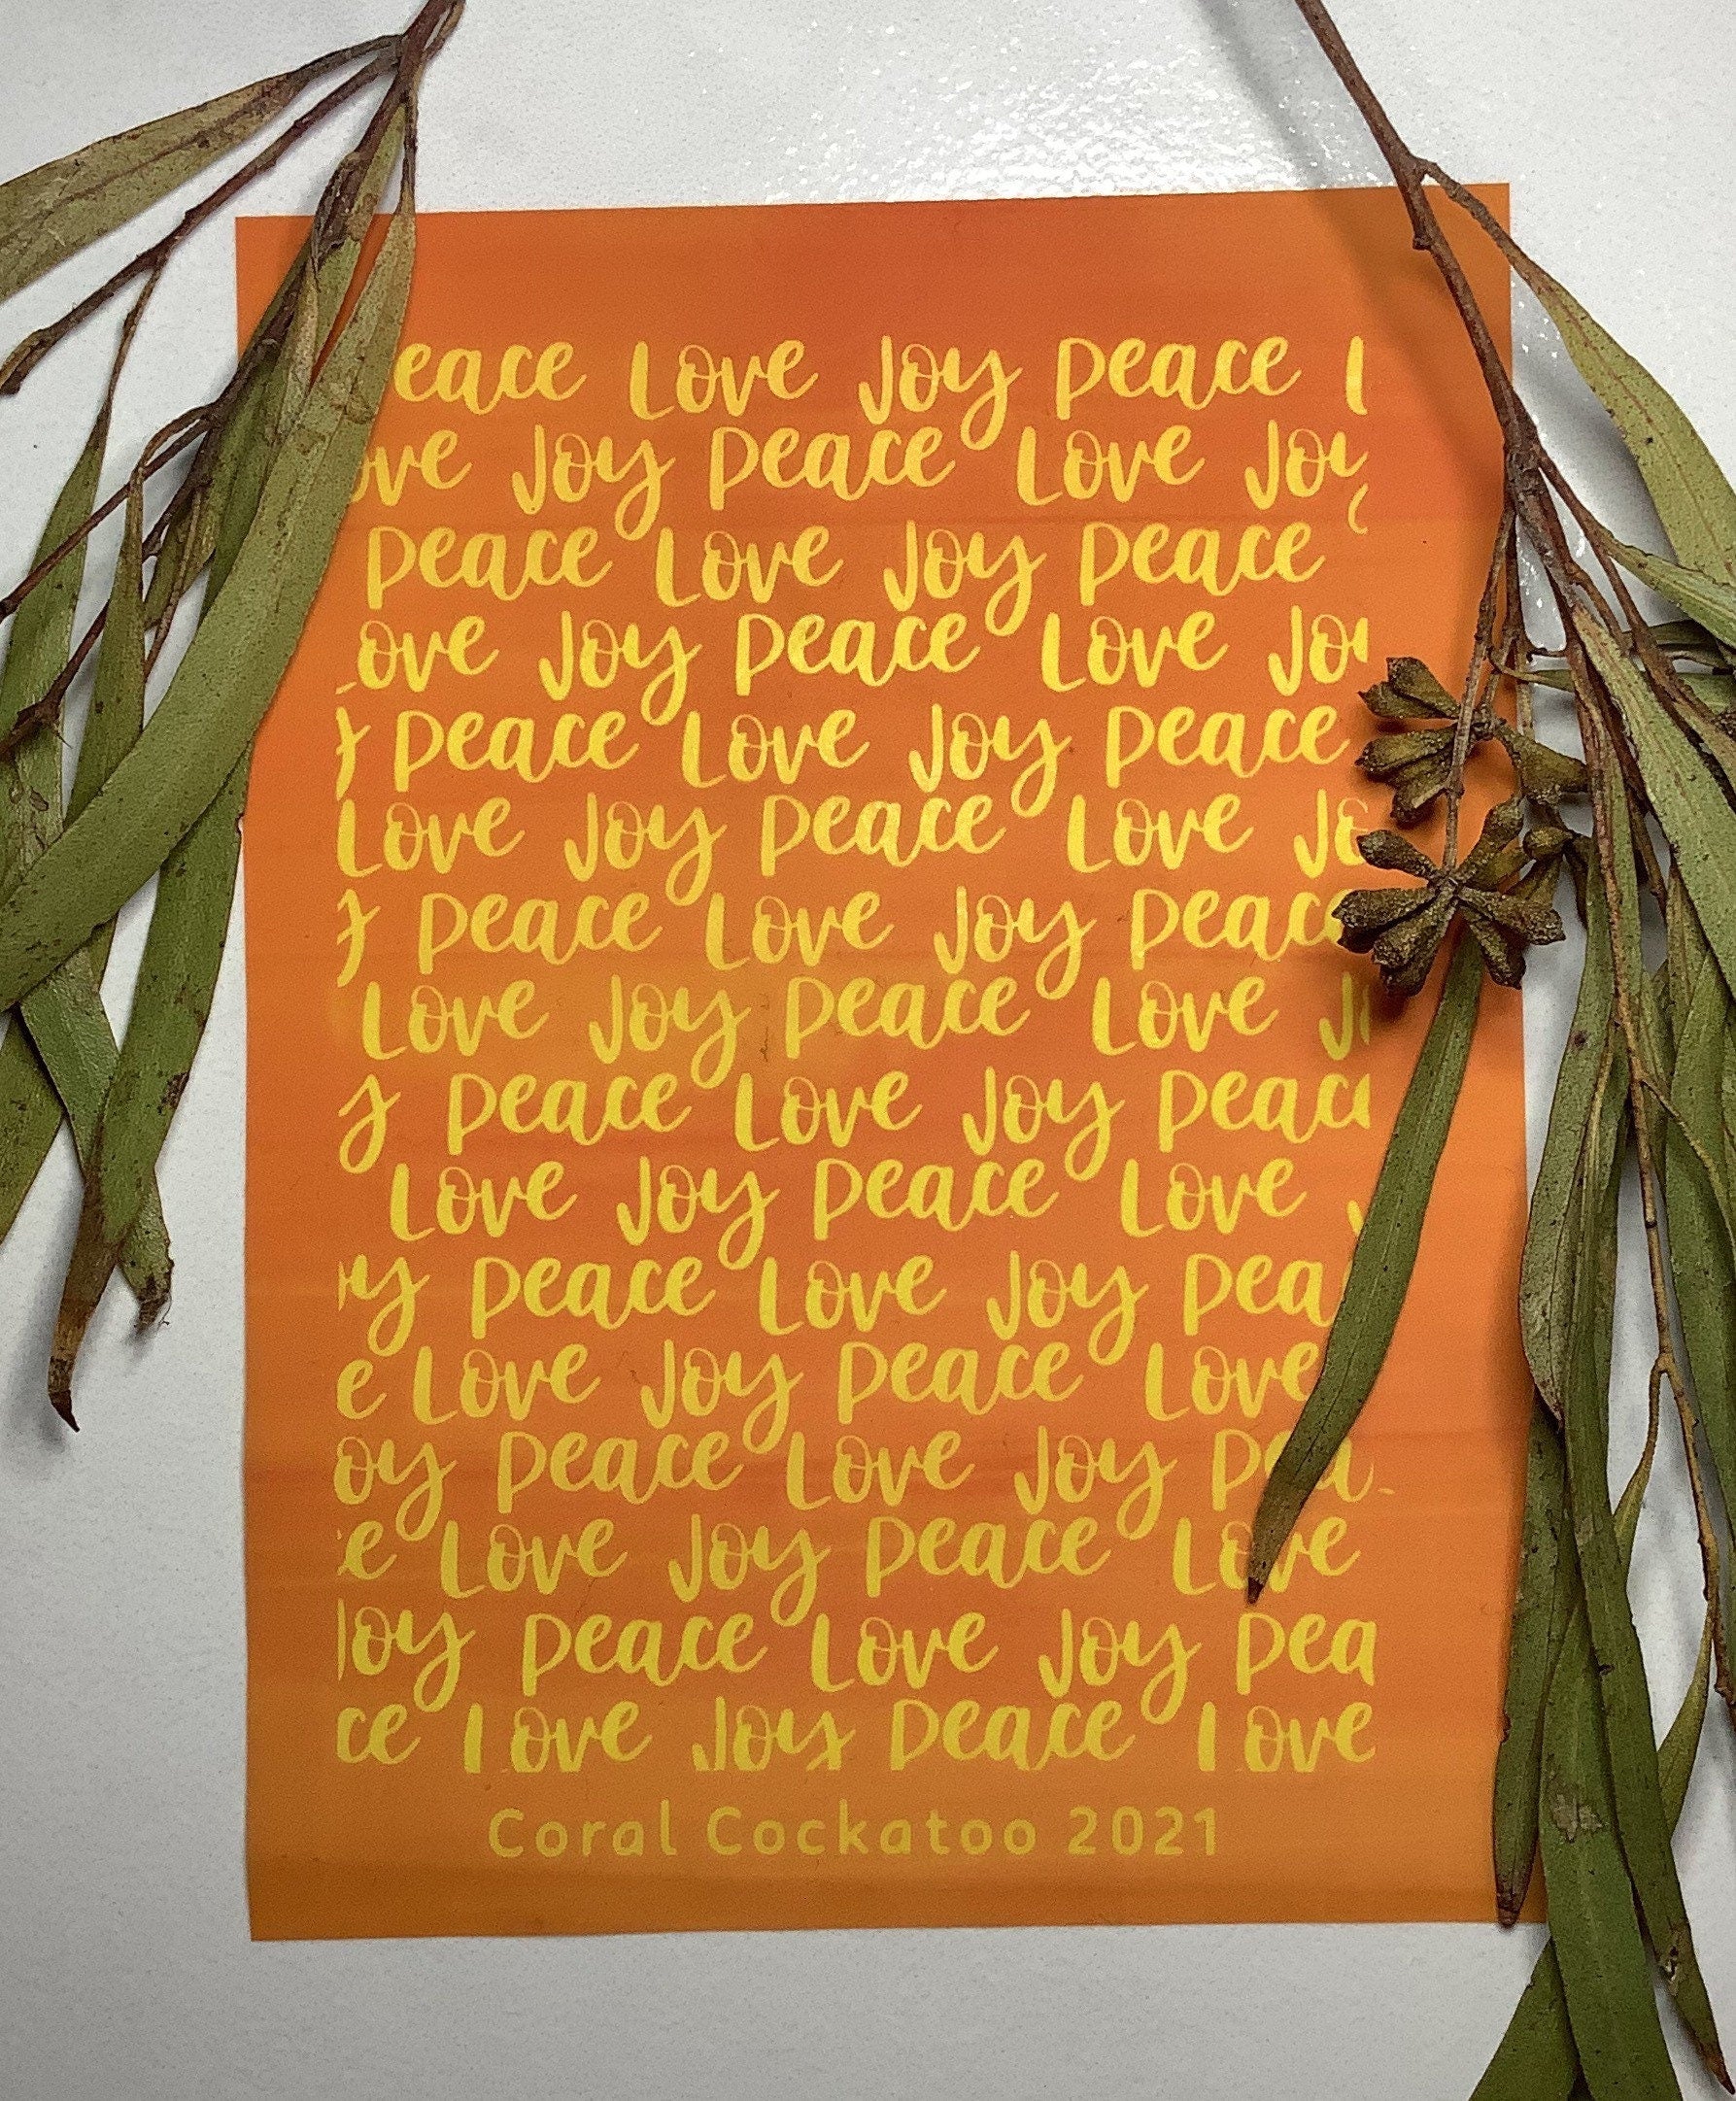 eace Love Joy Peace L
ove Joy Peace Love Joy
Peace Love Joy Peace
ove Joy Peace Love Joy
Peace Love Joy Peace
Love Joy Peace Love Jo
y Peace Love Joy Peace
Love Joy Peace Love J
y Peace Love Joy Peac
Love Joy Peace Love J
oy Peace Love Joy Pea
e Love Joy Peace Love
oy Peace Love Joy Pea
e Love Joy Peace Love
Joy Peace Love Joy Pea
ce Love Joy Peace Love
Coral Cockatoo 2021